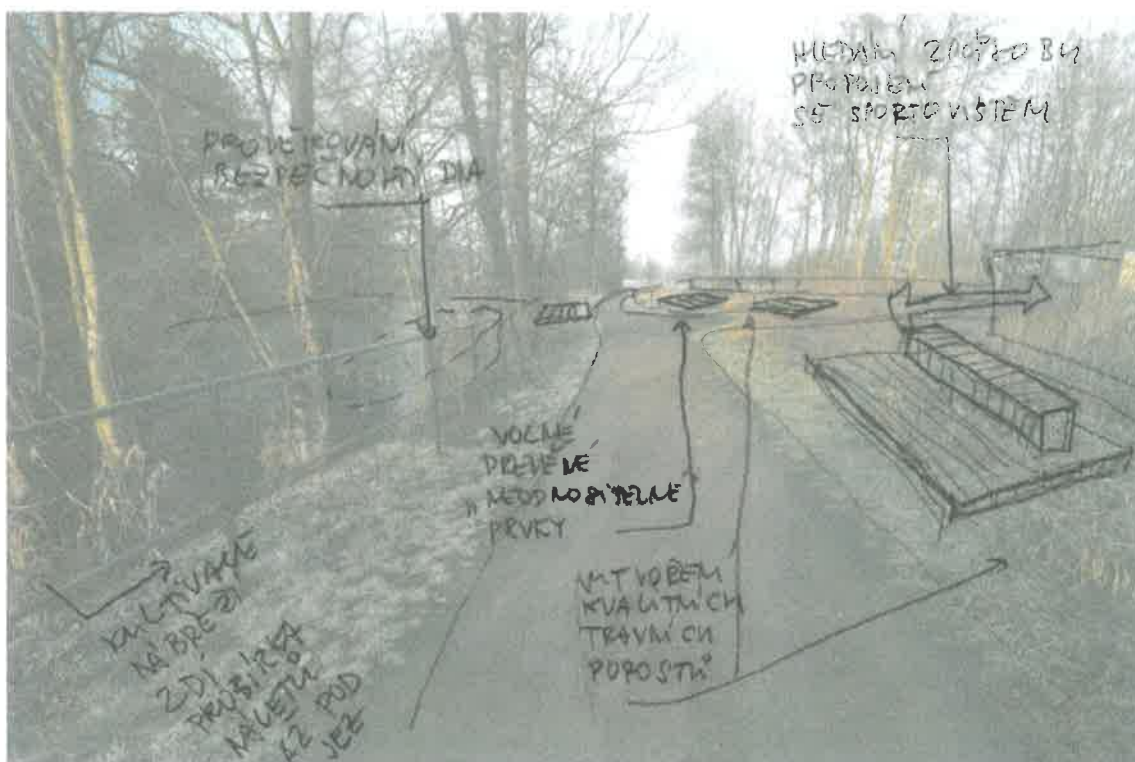 HLEDÁNÍ ZPŮSOBU
PROPOJENÍ
SE SPORTOVIŠTĚM
PROVĚTROVÁNÍ
BEZPEČNOSTI DLA
VOLNÉ
DŘEVĚNÉ
"NEODNOSITELNÉ
PRVKY
VYTVOŘENÍ
KVALITNÍCH
TRAVNÍCH
POROSTŮ
KULTIVACE
NÁBŘEŽÍ
ZDÍ
PROBÍRKA
NÁLETŮ
AŽ POD
JEZ